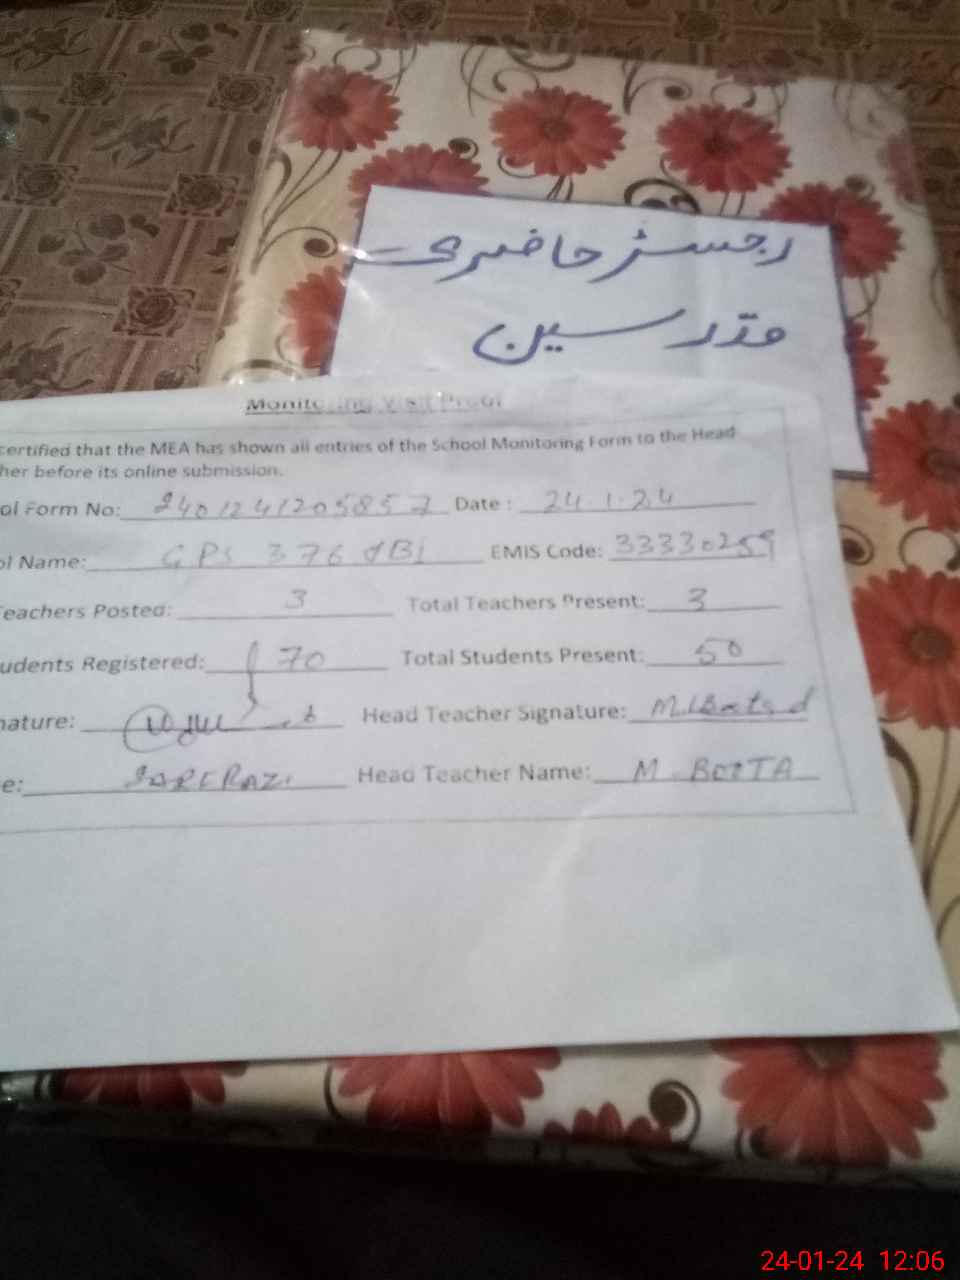 رجسٹر حاضری
مدرسین
Monitoring Visit Proof
certified that the MEA has shown all entries of the School Monitoring Form to the Head
her before its online submission.
ol Form No: 2401241205857 Date : 24.1.24
ol Name: GPS 376 JB1 EMIS Code: 33330259
Teachers Posted: 3 Total Teachers Present: 3
udents Registered: 70 Total Students Present: 50
nature: Head Teacher Signature:
e: Head Teacher Name: M. BOTTA
24-01-24 12:06